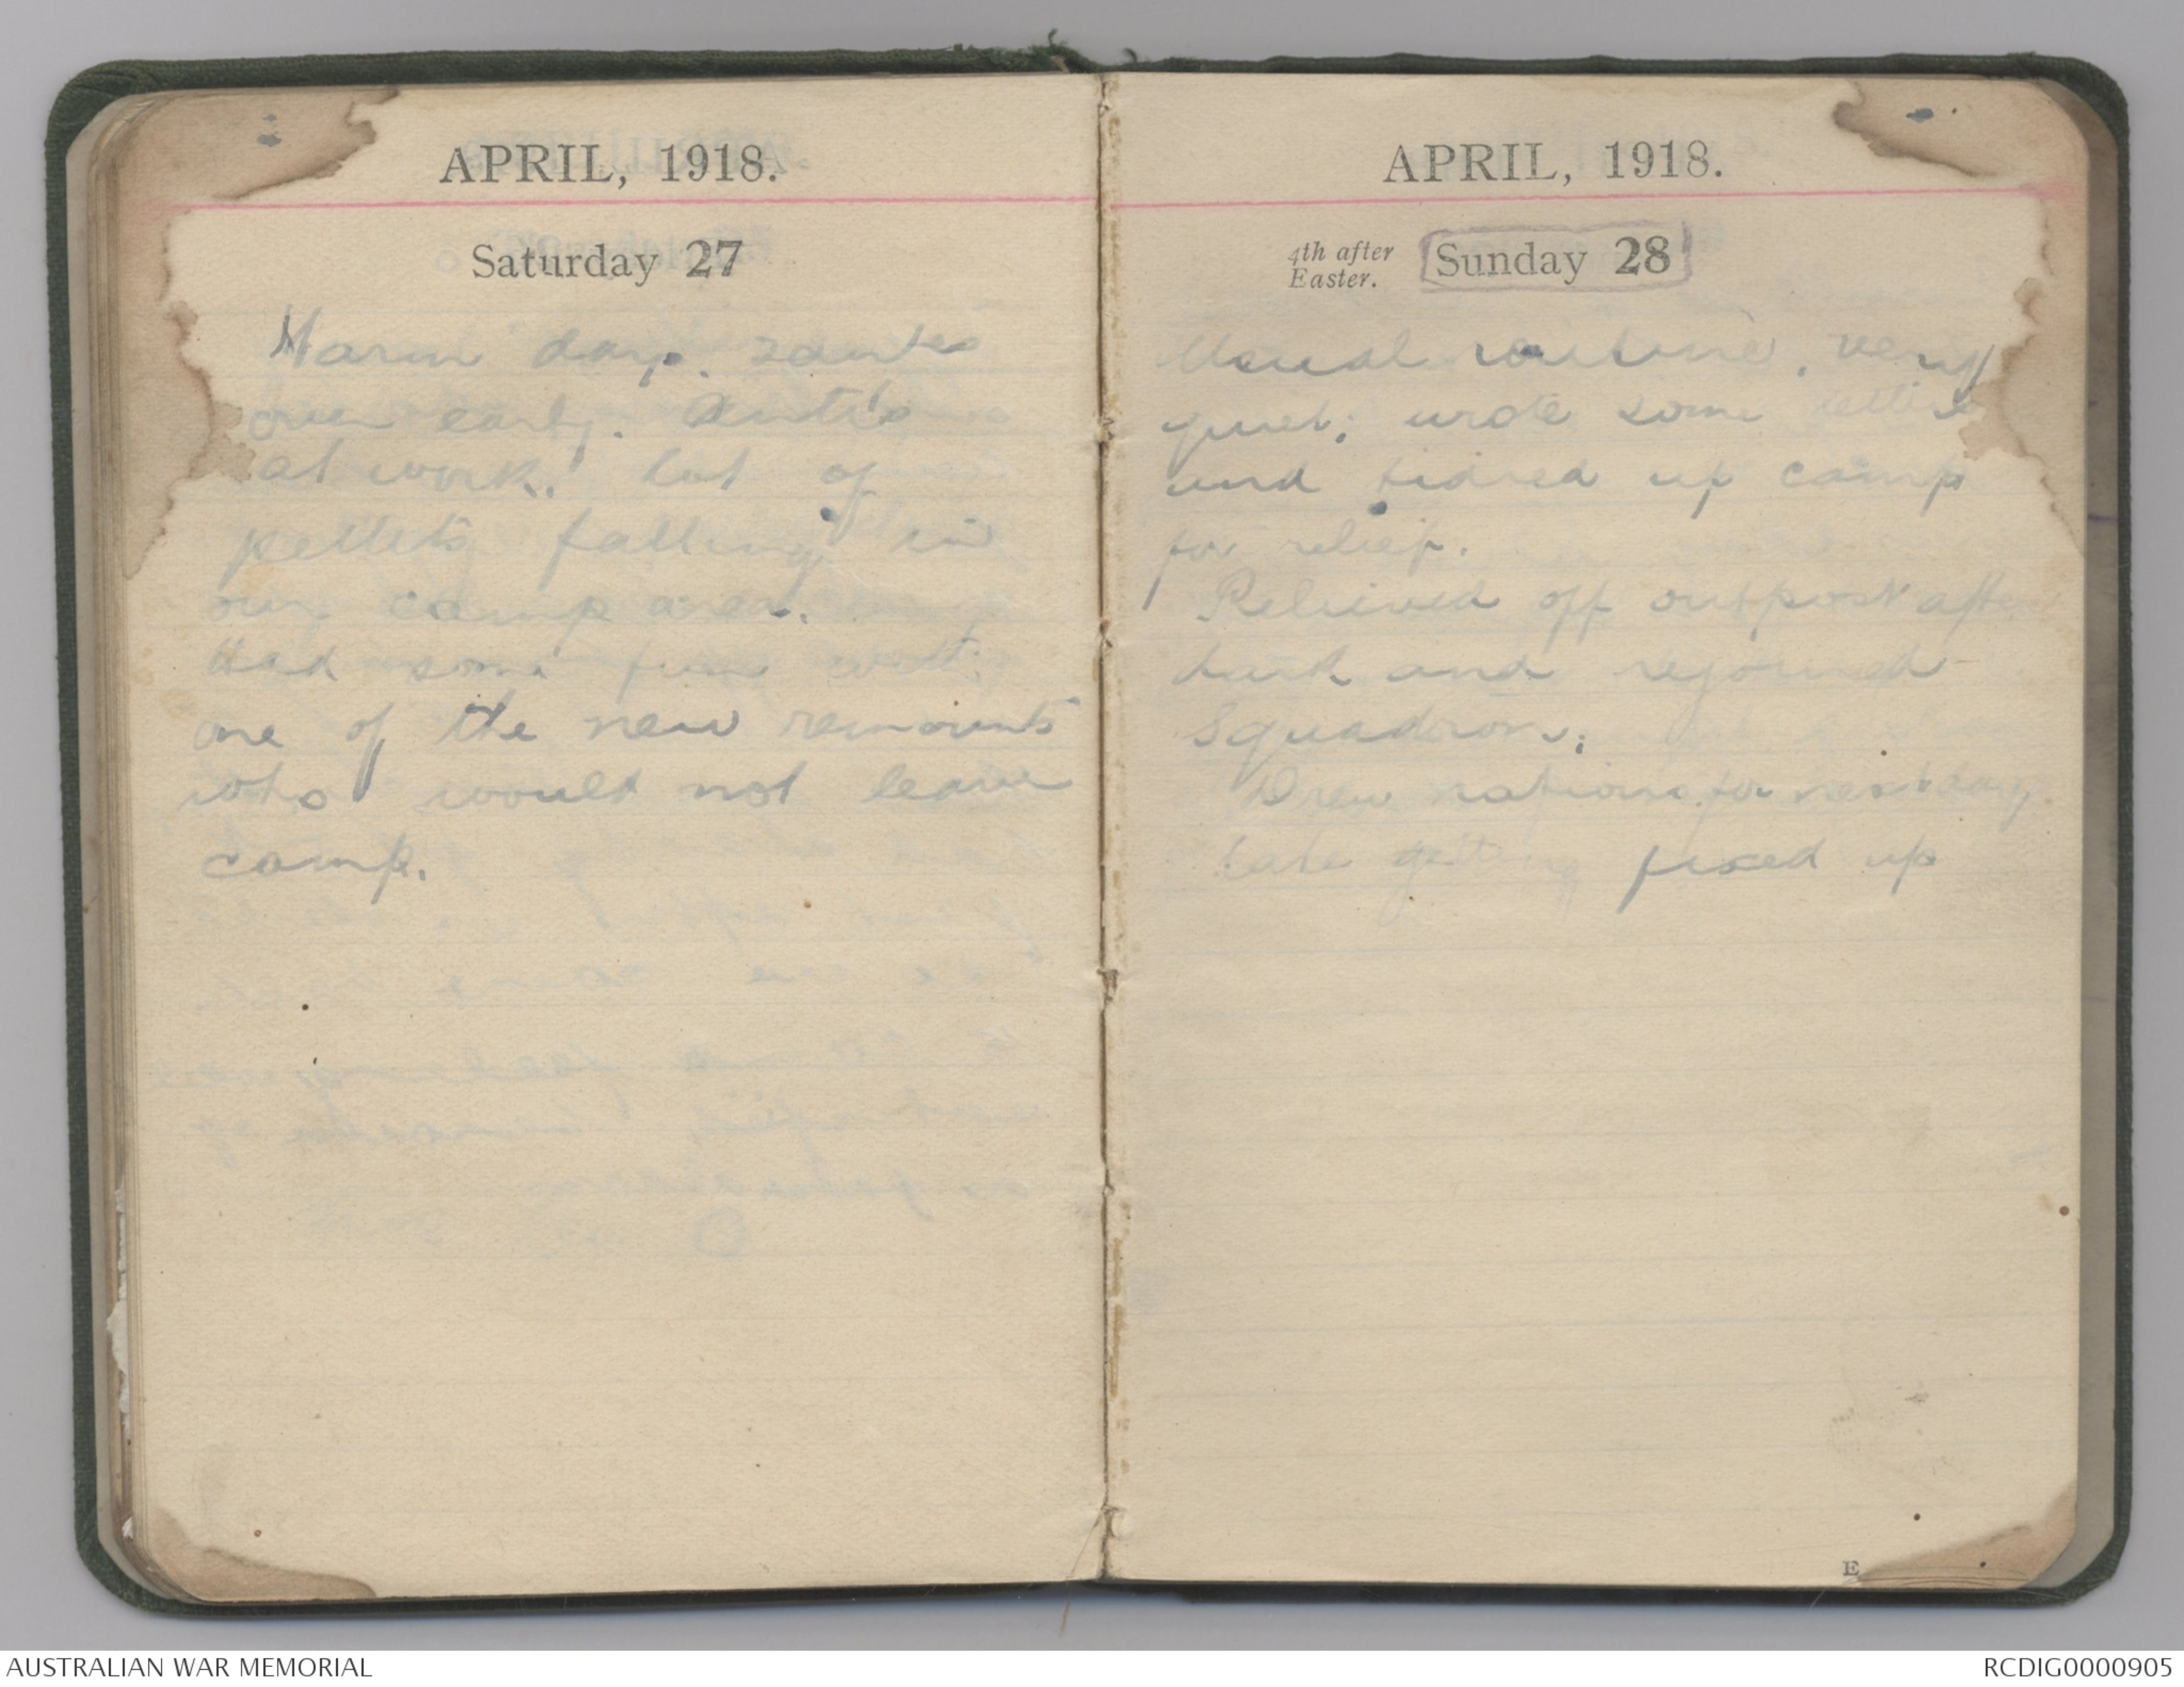 APRIL, 1918.
Saturday 27
Warm day. Taubes
over early. Anti's
at work. Lot of
pellets falling in
our camp area.
Had some fun with
one of the new remounts
who would not leave
camp.
APRIL, 1918.
4th after Easter. Sunday 28
Usual routine, very
quiet; wrote some letters
and tidied up camp
for relief.
Relieved off outpost after
dark and rejoined
Squadron.
Drew rations for next day.
Late getting fixed up
E
AUSTRALIAN WAR MEMORIAL
RCDIG0000905